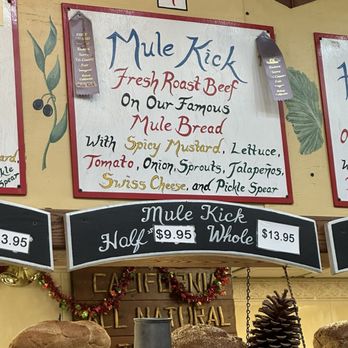 Mule Kick
Fresh Roast Beef
On Our Famous
Mule Bread
With Spicy Mustard, Lettuce,
Tomato, Onion, Sprouts, Jalapeños,
Swiss Cheese, and Pickle Spear
Mule Kick
Half $9.95 Whole $13.95
13.95
$13.95
CALIFORNIA
ALL NATURAL